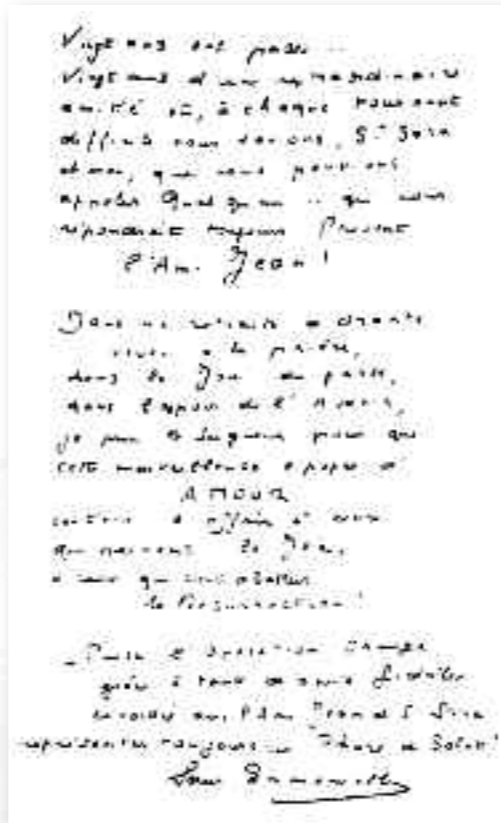 Vingt ans ont passé...
Vingt ans d'une extraordinaire
amitié où, à chaque tournant
difficile nous savions, Sr Sara
et moi, que nous pouvions
appeler Quelqu'un .. qui nous
répondrait toujours Présent
l'Ami Jean !
Dans ma retraite
à la prière,
dans la Joie du passé,
dans l'espoir de l'Avenir,
je prie le Seigneur pour que
cette merveilleuse épopée d'
AMOUR
continue à offrir à ceux
qui la Joie,
à ceux qui
la Résurrection !
Puisse l'Opération Orange
grâce à tant de amis fidèles
l'Ami Jean et S Sara
représenter toujours Soleil !
Soeur Emmanuelle